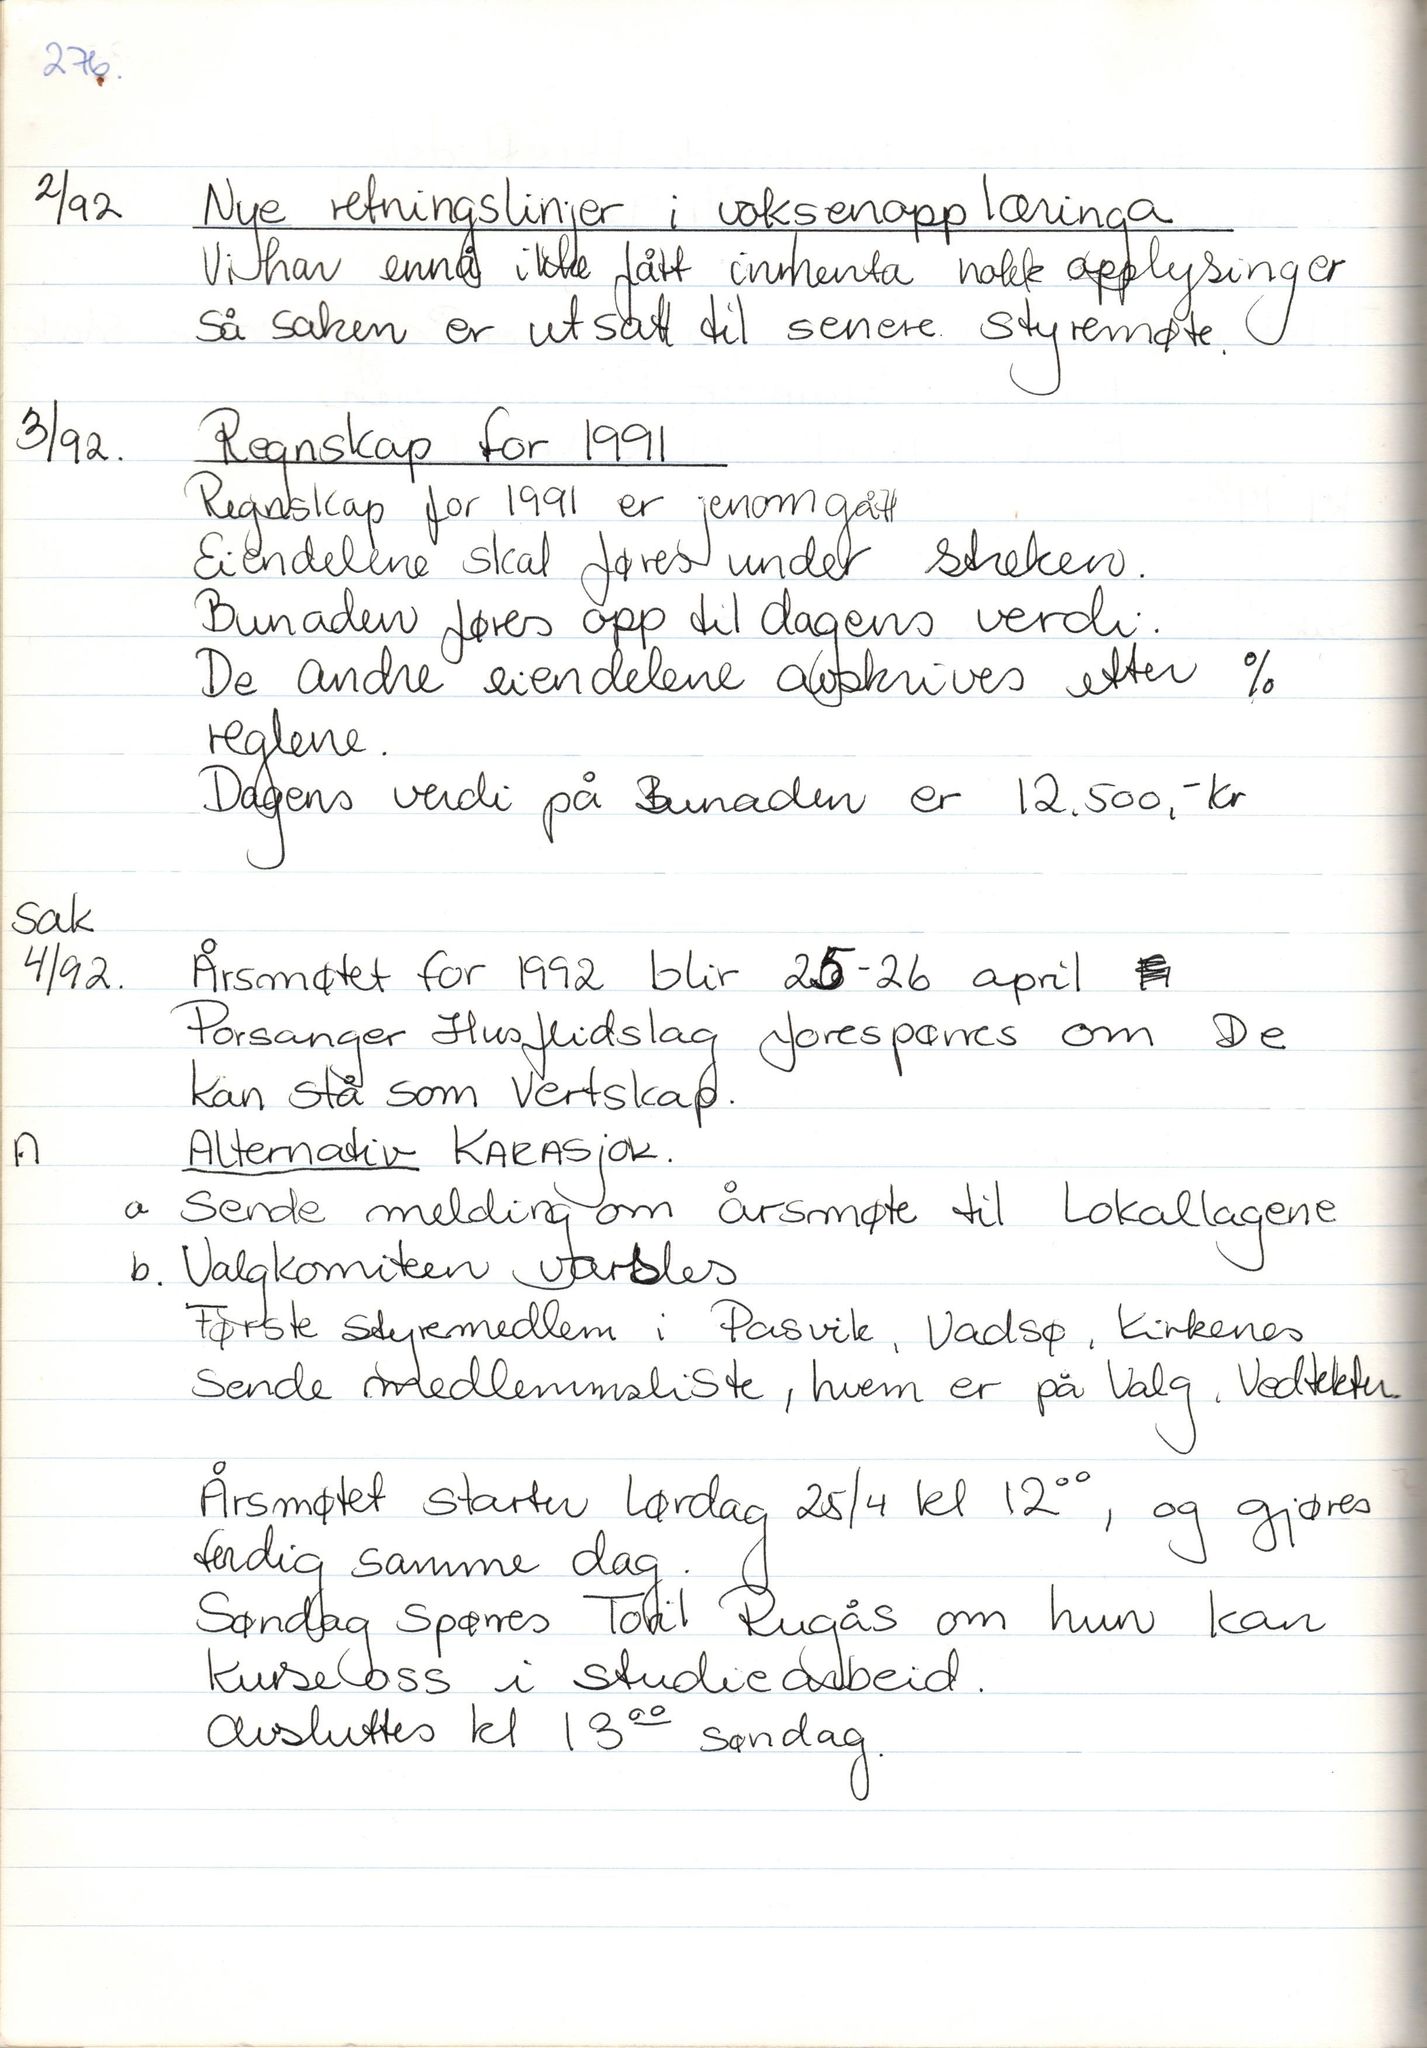 276.
2/92 Nye retningslinjer i voksenopplæringa
Vi har ennå ikke fått innhenta nokk opplysinger
så saken er utsatt til senere styremøte.
3/92. Regnskap for 1991
Regnskap for 1991 er jenomgått
Eiendelene skal føres under streken.
Bunaden føres opp til dagens verdi.
De andre eiendelene avskrives etter %
reglene.
Dagens verdi på Bunaden er 12.500,- kr
Sak
4/92. Årsmøtet for 1992 blir 25-26 april
Porsanger Husflidslag forespørres om De
kan stå som Vertskap.
A Alternativ KARASjOK.
a Sende melding om årsmøte til Lokallagene
b. Valgkomiteen varsles
Første styremedlem i Pasvik, Vadsø, Kirkenes
Sende medlemmsliste, hvem er på Valg, Vedtekter
Årsmøtet starter Lørdag 25/4 kl 12⁰⁰, og gjøres
ferdig samme dag.
Søndag spørres Toril Rugås om hun kan
Kurse oss i studiearbeid.
Avsluttes kl 13⁰⁰ søndag.